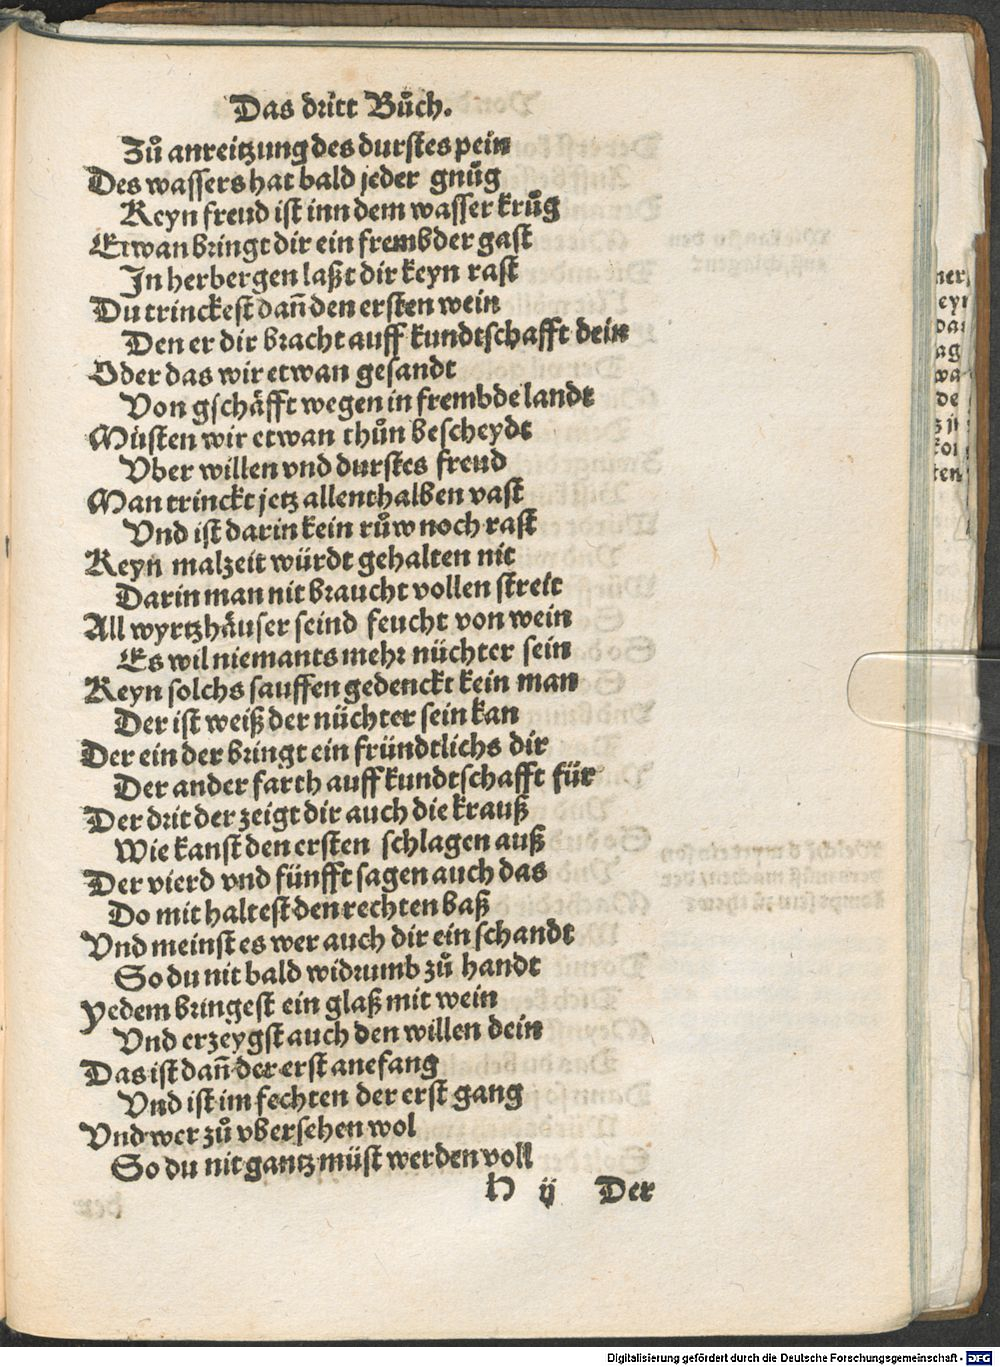 Das dritt Bůch.
Zů anreitzung des durstes pein
Des wassers hat bald jeder gnůg
Keyn freud ist inn dem wasser krůg
Etwan bringt dir ein frembder gast
In herbergen laßt dir keyn rast
Du trinckest dañ den ersten wein
Den er dir bracht auff kundtschafft dein
Oder das wir etwan gesandt
Von gschäfft wegen in frembde landt
Müsten wir etwan thůn bescheydt
Vber willen vnd durstes freud
Man trinckt jetz allenthalben vast
Vnd ist darin kein růw noch rast
Keyn malzeit würdt gehalten nit
Darin man nit braucht vollen streit
All wyrtzhäuser seind feucht von wein
Es wil niemants mehr nüchter sein
Keyn solchs sauffen gedenckt kein man
Der ist weiß der nüchter sein kan
Der ein der bringt ein fründtlichs dir
Der ander farth auff kundtschafft für
Der drit der zeigt dir auch die krauß
Wie kanst den ersten schlagen auß
Der vierd vnd fünfft sagen auch das
Do mit haltest den rechten baß
Vnd meinst es wer auch dir ein schandt
So du nit bald widrumb zů handt
Yedem bringest ein glaß mit wein
Vnd erzeygst auch den willen dein
Das ist dañ der erst anefang
Vnd ist im fechten der erst gang
Vnd wer zů vbersehen wol
So du nit gantz müst werden voll
H ij Der
Digitalisierung gefördert durch die Deutsche Forschungsgemeinschaft - DFG